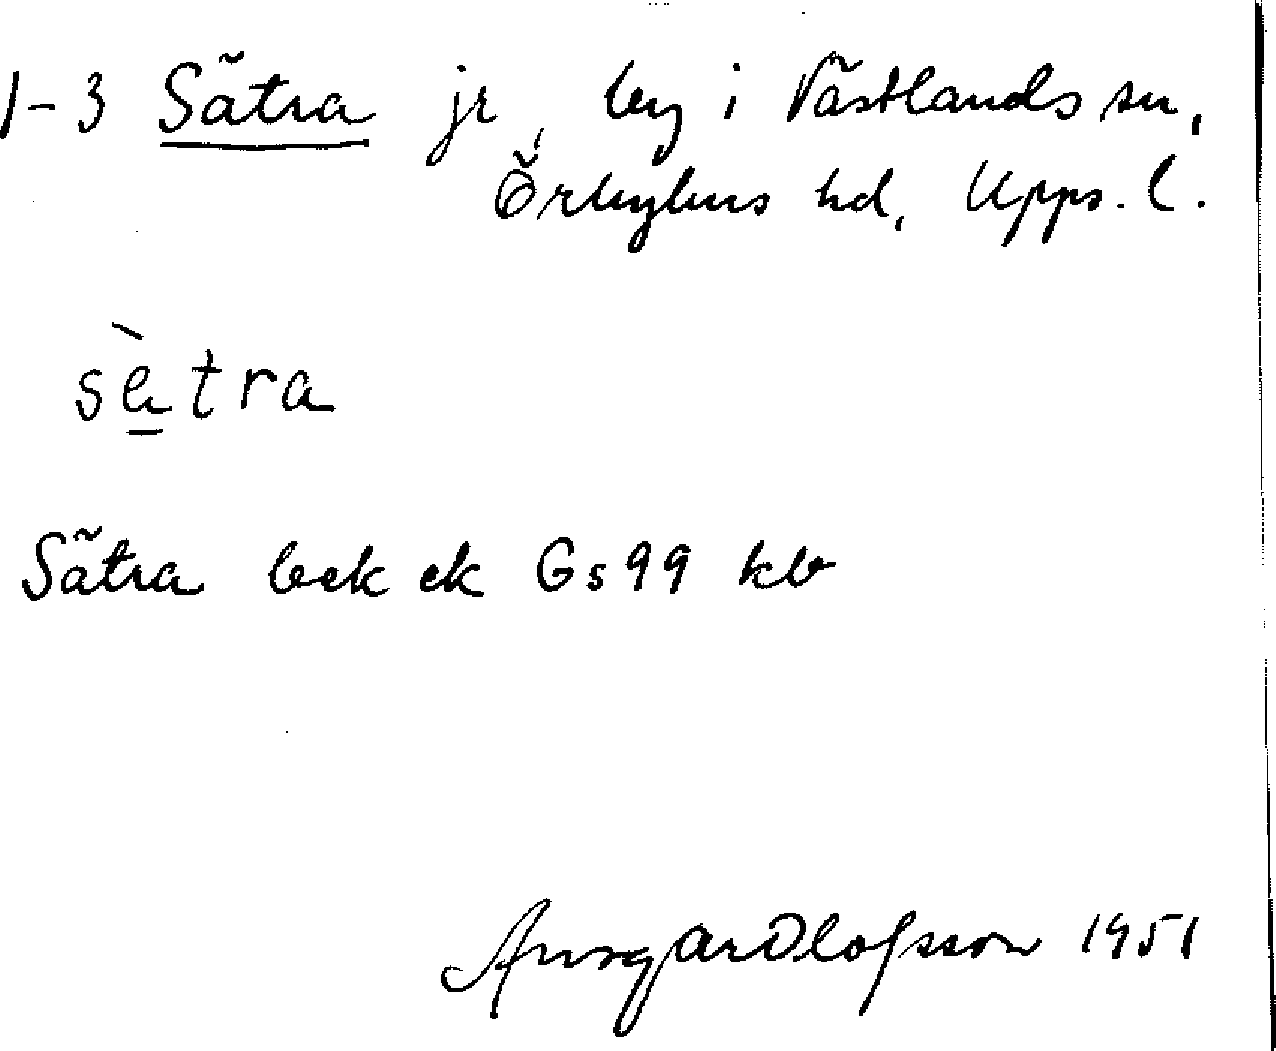 1-3 Sätra jr, by i Västlands sn,
Örbyhus hd, Upps. l.
sè̱tra
Sätra bek ek Gs 99 kb
Ansgar Olofsson 1951